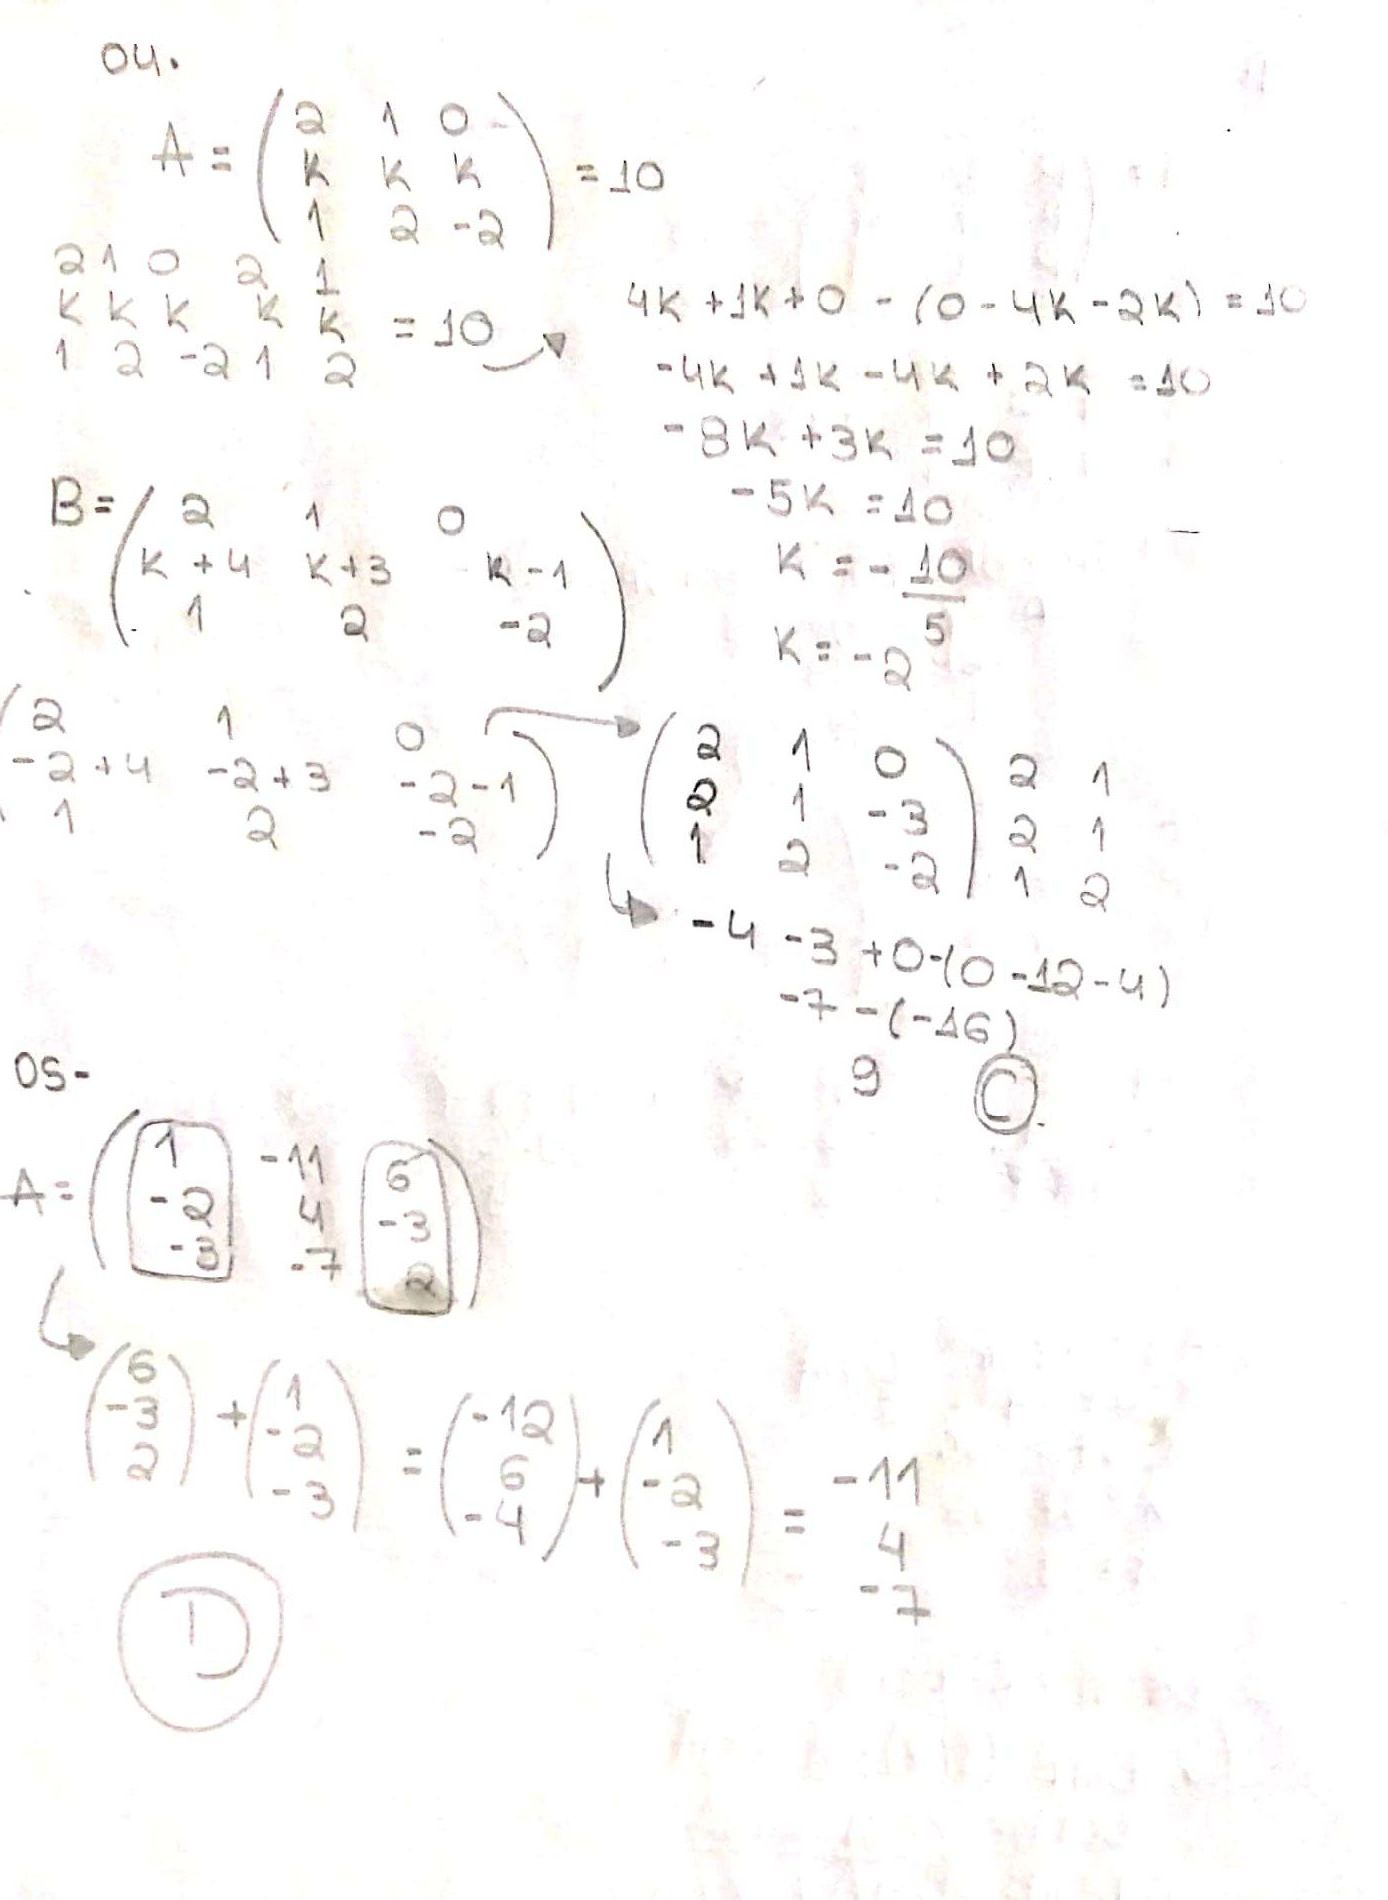 04.
A = ( 2 1 0
K K K = 10
1 2 -2 )
2 1 0 2 1
K K K K K = 10
1 2 -2 1 2
4K + 1K + 0 - (0 - 4K - 2K) = 10
-4K + 1K - 4K + 2K = 10
-8K + 3K = 10
-5K = 10
K = - 10
5
K = -2
B = ( 2 1 0
K + 4 K + 3 K - 1
1 2 -2 )
( 2 1 0
-2 + 4 -2 + 3 -2 - 1
1 2 -2 )
( 2 1 0 ) 2 1
2 1 -3 2 1
1 2 -2 1 2
-4 -3 + 0 - (0 - 12 - 4)
-7 - (-16)
9 C
05-
A = ( 1 -11 6
-2 4 -3
-3 -7 2 )
( 6 -3 2 ) + ( 1 -2 -3 ) = ( -12 6 -4 ) + ( 1 -2 -3 ) = -11 4 -7
D